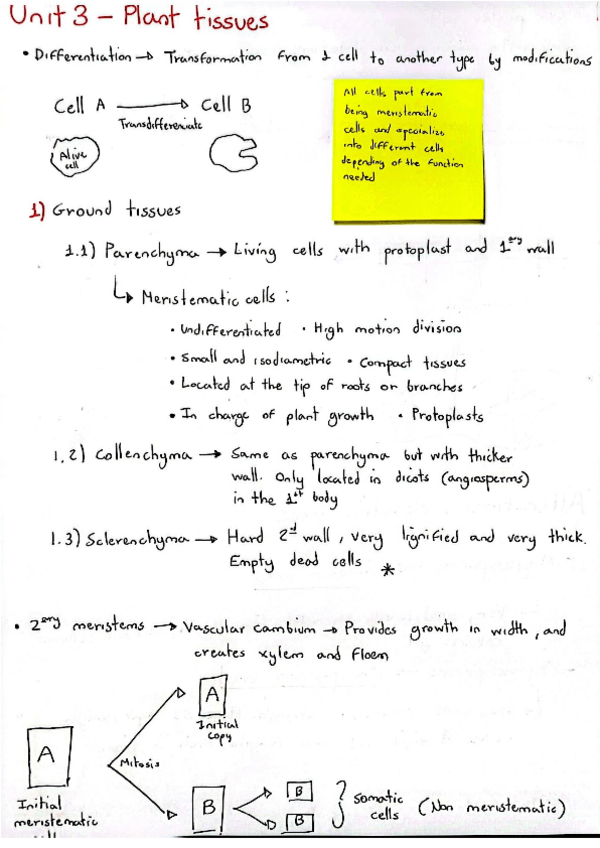 Unit 3 – Plant tissues
• Differentiation → Transformation from 1 cell to another type by modifications
Cell A → Cell B
Transdifferenciate
Alive cell
All cells part from
being meristematic
cells and specialize
into different cells
depending of the function
needed
1) Ground tissues
1.1) Parenchyma → Living cells with protoplast and 1ary wall
↳ Meristematic cells :
• Undifferentiated • High motion division
• Small and isodiametric • Compact tissues
• Located at the tip of roots or branches
• In charge of plant growth • Protoplasts
1.2) Collenchyma → Same as parenchyma but with thicker
wall. Only located in dicots (angiosperms)
in the 1st body
1.3) Sclerenchyma → Hard 2d wall, very lignified and very thick.
Empty dead cells *
• 2ary meristems → Vascular cambium → Provides growth in width, and
creates xylem and floem
A
Initial
copy
A
Mitosis
B
B
B
Somatic
cells
(Non meristematic)
Initial
meristematic